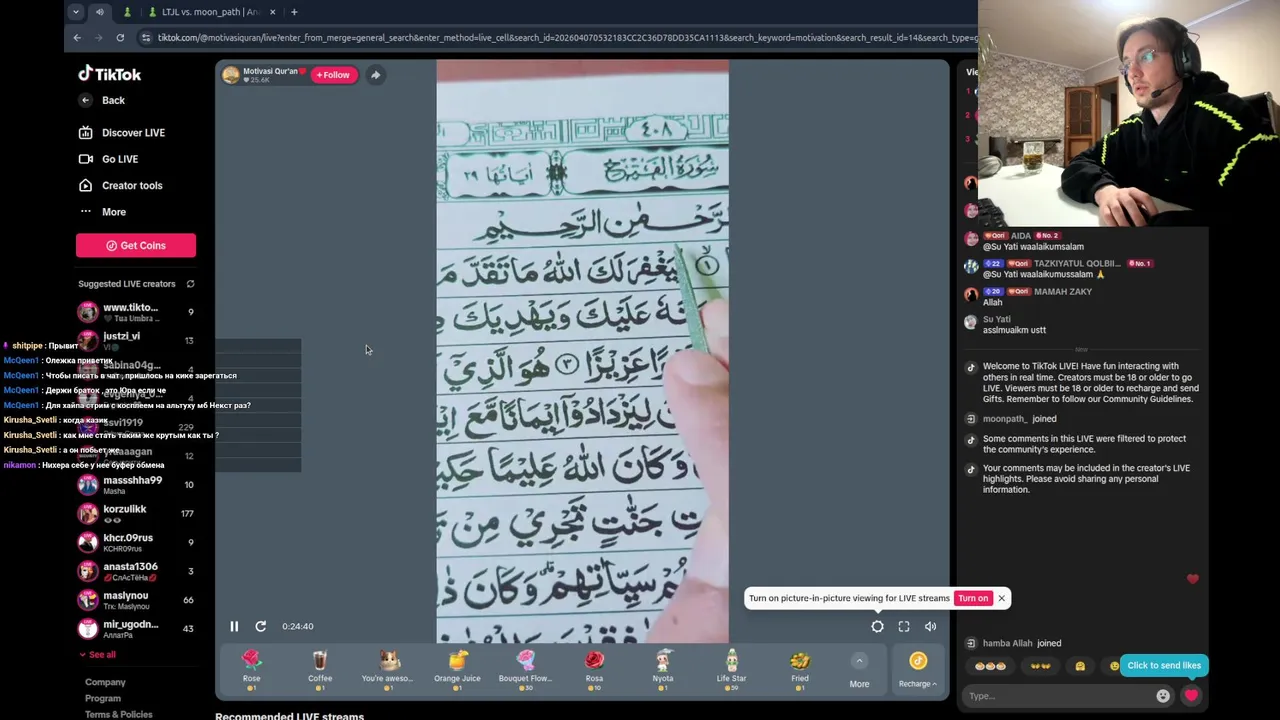 LTJL vs. moon_path | An
tiktok.com/@motivasiquran/live?enter_from_merge=general_search&enter_method=live_cell&search_id=202604070532183CC2C36D78DD35CA1113&search_keyword=motivation&search_result_id=14&search_type=g
TikTok
Back
Discover LIVE
Go LIVE
Creator tools
More
Get Coins
Suggested LIVE creators
www.tikto...
Tua Umbra ...
9
justzi_vi
13
sabina04g...
4
229
12
massshha99
Masha
10
korzulikk
177
khcr.09rus
KCHR09rus
9
anasta1306
СлАсТёНа
3
maslynou
Trx: Maslynou
66
mir_ugodn...
АллатРа
43
See all
Company
Program
Terms & Policies
shitpipe : Прывит
McQeen1 : Олежка приветик
McQeen1 : Чтобы писать в чат , пришлось на кике зарегаться
McQeen1 : Держи браток , это Юра если че
McQeen1 : Для хайпа стрим с коспеем на альтуху мб Некст раз?
Kirusha_Svetli : когда казик
Kirusha_Svetli : как мне стать таким же крутым как ты ?
Kirusha_Svetli : а он побьет же
nikamon : Нихера себе у нее буфер обмена
Motivasi Qur'an
25.6K
+ Follow
٤٠٨
سُورَةُ الْفَتْحِ
اٰيَاتُهَا ٢٩
الرَّحِيْمِ
١
لَكَ اللّٰهُ مَا تَقَدَّ
عَلَيْكَ وَيَهْدِيَكَ
عَزِيْزًا ٣ هُوَ الَّذِيْ
لِيَزْدَادُوْٓا اِيْمَانًا مَّعَ
وَكَانَ اللّٰهُ عَلِيْمًا
جَنّٰتٍ تَجْرِيْ مِنْ
سَيِّاٰتِهِمْ وَكَانَ
0:24:40
Turn on picture-in-picture viewing for LIVE streams
Turn on
Rose
1
Coffee
1
You're aweso...
1
Orange Juice
1
Bouquet Flow...
30
Rosa
10
Nyota
1
Life Star
39
Fried
1
More
Recharge
Recommended LIVE streams
Vie
1
2
3
Qori AIDA No. 2
@Su Yati waalaikumsalam
22 Qori TAZKIYATUL QOLBII... No. 1
@Su Yati waalaikumussalam
20 Qori MAMAH ZAKY
Allah
Su Yati
asslmuaikm ustt
New
Welcome to TikTok LIVE! Have fun interacting with
others in real time. Creators must be 18 or older to go
LIVE. Viewers must be 18 or older to recharge and send
Gifts. Remember to follow our Community Guidelines.
moonpath_ joined
Some comments in this LIVE were filtered to protect
the community's experience.
Your comments may be included in the creator's LIVE
highlights. Please avoid sharing any personal
information.
hamba Allah joined
Click to send likes
Type...